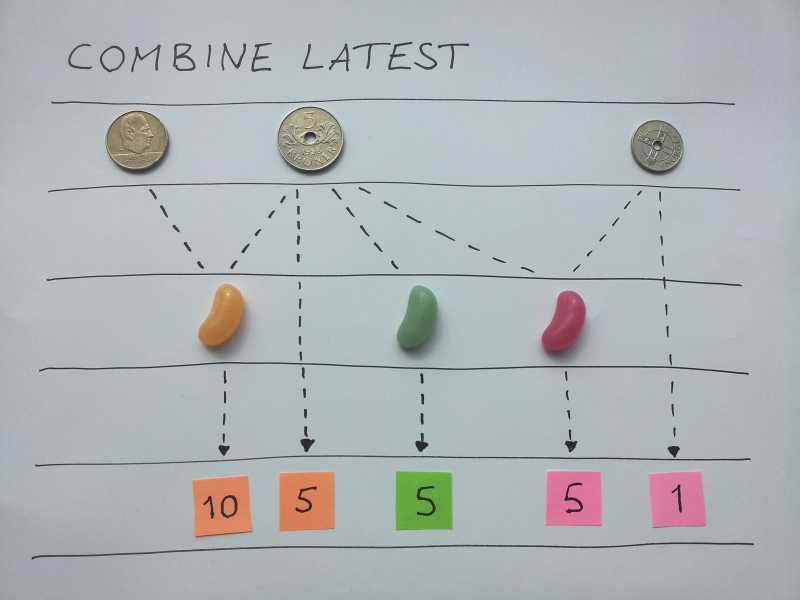 COMBINE LATEST
5
KRONER
10
5
5
5
1